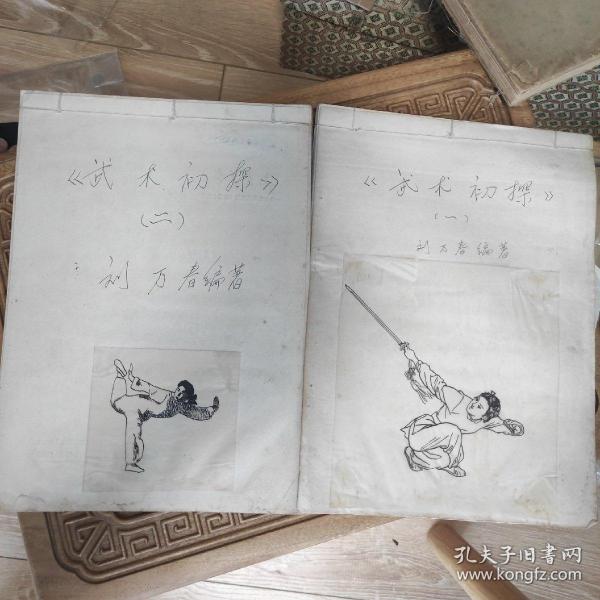 《武术初探》
(二)
刘万春编著
《武术初探》
(一)
刘万春编著
孔夫子旧书网
www.kongfz.com